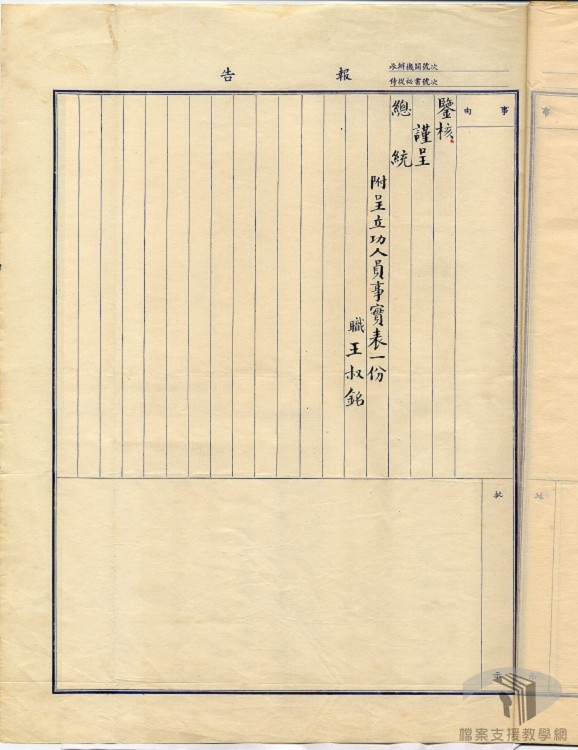 報告
承辦機關號次
侍從秘書號次
事由
鑒核
謹呈
總統
附呈立功人員事實表一份
職王叔銘
批示
檔案支援教學網